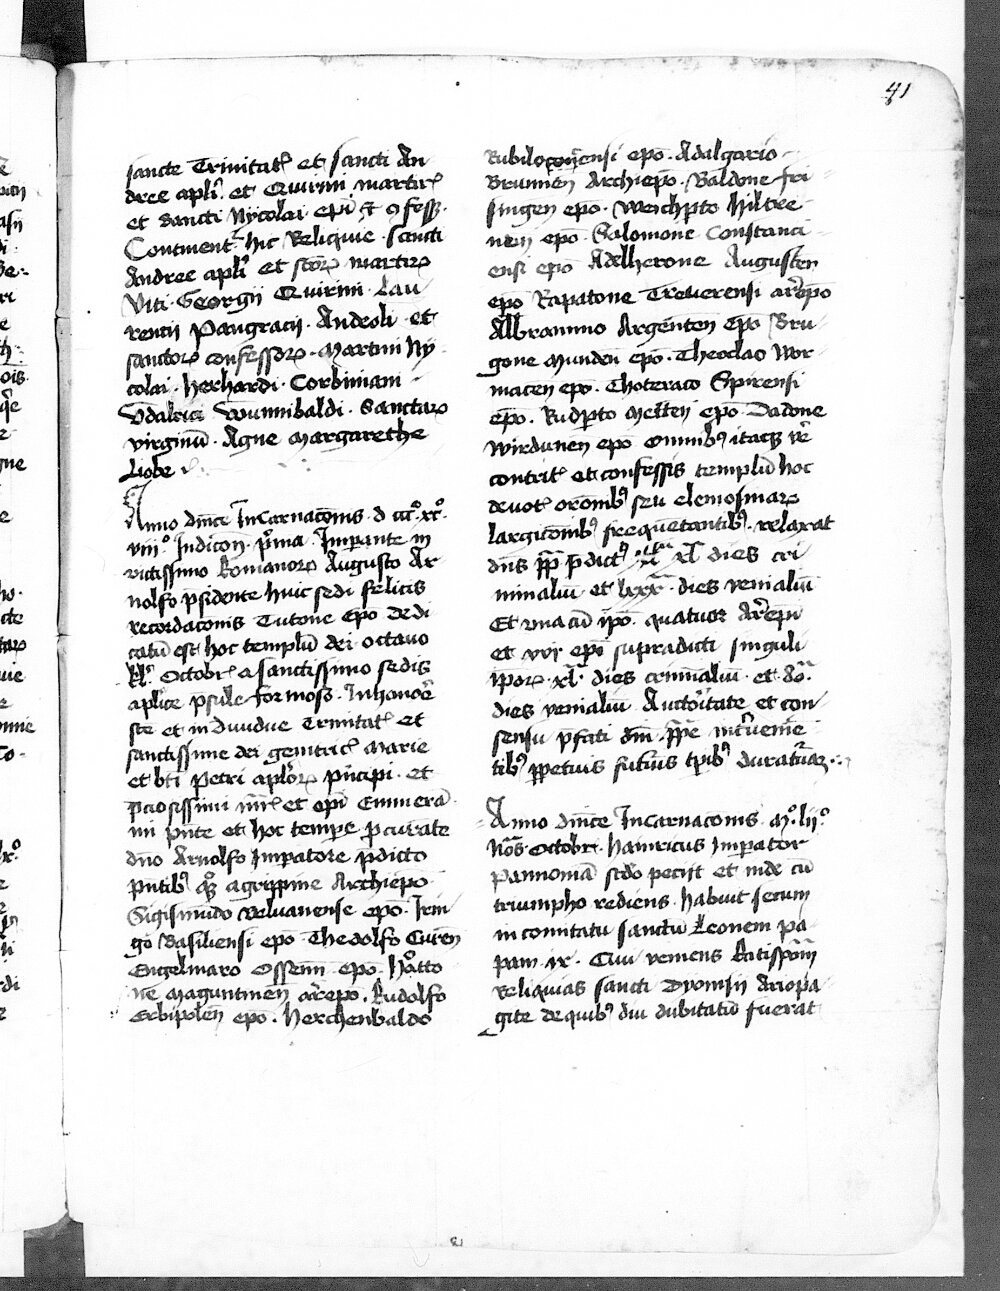 41
sancte Trinitat et sancti An
dree apli et Quirini martir
et sancti Nycolai epi et 9fess.
Continent hic Reliquie sancti
Andree apli et scor martir
Viti Georgii Quirini Lau
rentii Pangracii Andeoli et
sanctor confessor Martini Ny
colai Herhardi Corbiniani
Vdalrici Wunnibaldi Sanctar
virginu Agne Margarethe
Liobe
Anno dnice Incarnacois d ccco xco
viiio Indicon prima Imperante in
victissimo Romanor Augusto Ar
nolfo psidente huic sedi felicis
recordacois Tutone epo dedi
catu est hoc templu dei octavo
kl Octobr a sanctissimo sedis
aplice psule formoso In honore
scte et indiuidue Trinitat et
sanctissime dei genitric Marie
et bti Petri aplor pncipi et
pciosissimi mr et epi Emmera
mi pnte et hoc tempe pcurate
dno Arnolfo Impatore pdicto
pntib9 qz agrippine Archiepo
Sigismudo veluanense epo Irin
go Basiliensi epo Thedolfo Curen
Engelmaro Ossenn epo Hatto
ne Maguntinen arepo Rudolfo
Erbipolen epo Herchenbaldo
Rubilocensi epo Adalgario
Brunnen Archiepo Baldone fri
singen epo Weichpto Hiltee
nen epo Salomone Constanci
ensi epo Adelherone Augusten
epo Rapatone Treuerensi arepo
Albrammo Argenten epo Bru
gone Munden epo Theoclao Wor
macen epo Thoteraco Spirensi
epo Rudpto Metten epo Dadone
Wirdunen epo Omnib9 itaqz ve
contrit et confessis templu hoc
devot oronib9 seu elemosinar
largicoib9 frequetantib9 relaxat
dns pp pdict9 xl dies cri
minaliu et lxxx dies venialiu
Et vna cu ipo quatuor Arepi
et xvj epi supradicti singuli
ipor xl dies criminaliu et
dies venialiu Auctoitate et con
sensu pfati dni ppe intuenie
tib9 ppetuis futuis tpib9 duratur
Anno dnice Incarnacois Mo liio
Nos Octobri Hainricus Imperator
Pannonia scdo peciit et inde cu
triumpho rediens habuit secum
in comitatu sanctu Leonem pa
pam ix Cui veniens Ratispona
Reliquias sancti Dyonisii Ariopa
gite de quib9 diu dubitatu fuerat